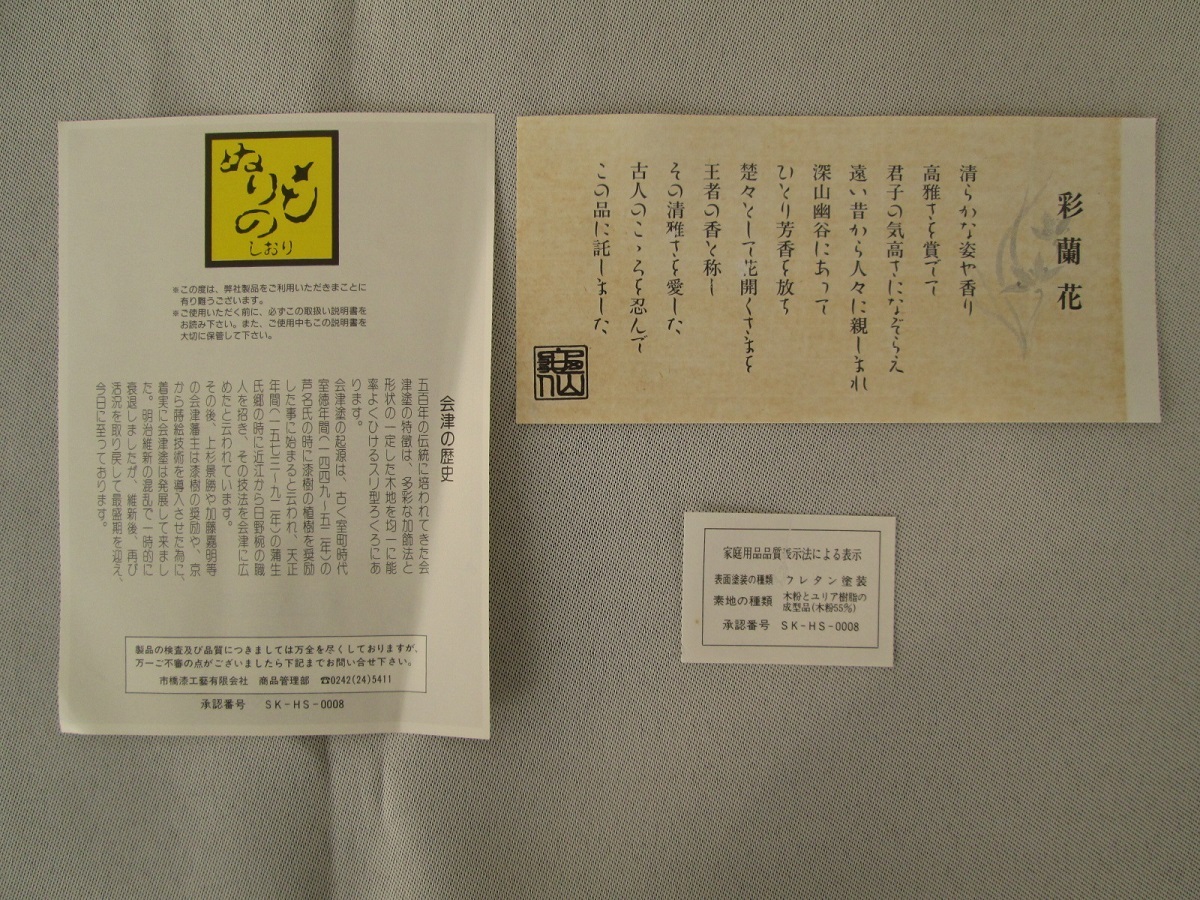 ぬりもの
しおり
※この度は、弊社製品をご利用いただきまことに
有り難うございます。
※ご使用いただく前に、必ずこの取扱い説明書を
お読み下さい。また、ご使用中もこの説明書を
大切に保管して下さい。
会津の歴史
五百年の伝統に培われてきた会
津塗の特徴は、多彩な加飾法と
形状の一定した木地を均一に能
率よくひけるスリ型ろくろにあ
ります。
会津塗の起源は、古く室町時代
室徳年間(一四四九〜五二年)の
芦名氏の時に漆樹の植樹を奨励
した事に始まると云われ、天正
年間(一五七三〜九二年)の蒲生
氏郷の時に近江から日野椀の職
人を招き、その技法を会津に広
めたと云われています。
その後、上杉景勝や加藤嘉明等
の会津藩主は漆樹の奨励や、京
から蒔絵技術を導入させた為に、
着実に会津塗は発展して来まし
た。明治維新の混乱で一時的に
衰退しましたが、維新後、再び
活況を取り戻して最盛期を迎え、
今日に至っております。
製品の検査及び品質につきましては万全を尽くしておりますが、
万一ご不審の点がございましたら下記までお問い合せ下さい。
市橋漆工藝有限会社 商品管理部 ☎0242(24)5411
承認番号 SK-HS-0008
彩蘭花
清らかな姿や香り
高雅さを賞でて
君子の気高さになぞらえ
遠い昔から人々に親しまれ
深山幽谷にあって
ひとり芳香を放ち
楚々として花開くさまを
王者の香と称し
その清雅さを愛した
古人のこゝろを忍んで
この品に託しました
家庭用品品質表示法による表示
表面塗装の種類 ウレタン塗装
素地の種類 木粉とユリア樹脂の
成型品(木粉55%)
承認番号 SK-HS-0008